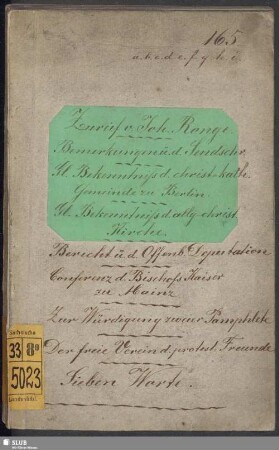 165
a. b. c. d. e. f. g. h. i.
Zuruf v. Joh. Ronge
Bemerkungen ü. d. Sendschr.
Gl. Bekenntniß d. christ-kath.
Gemeinde zu Berlin.
Gl. Bekenntniß d. allg. christ.
Kirche.
Bericht ü. d. Offenb. Deputation
Conferenz d. Bischofs Kaiser
zu Mainz
Zur Würdigung zweier Pamphlete
Der freie Verein d. protest. Freunde
Sieben Worte.
33 8°
5023
SLUB